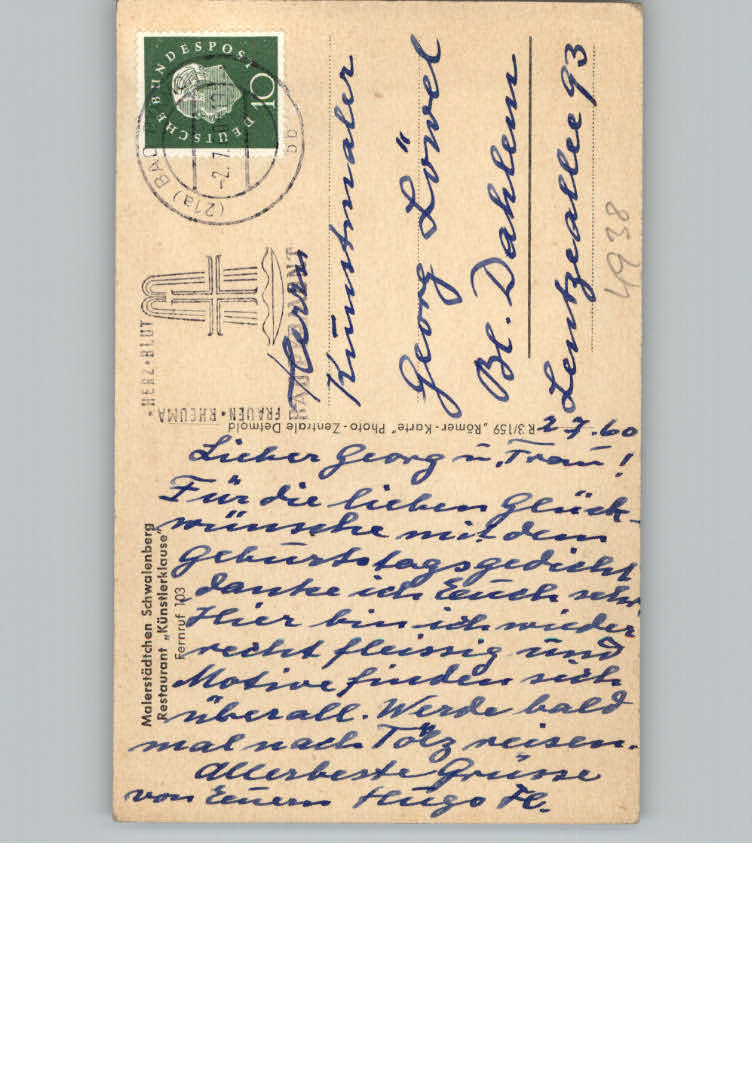 DEUTSCHE BUNDESPOST
10
(21a) BAD
-2.7.
HERZ·BLUT
FRAUEN·RHEUMA
Herrn
Kunstmaler
Georg Löwel
Bl. Dahlem
Lentzeallee 93
4938
R 3/159 „Römer-Karte" Photo-Zentrale Detmold
Malerstädtchen Schwalenberg
Restaurant „Künstlerklause"
Fernruf 103
2.7.60
Lieber Georg u. Frau!
Für die lieben Glück-
wünsche mit dem
Geburtstagsgedicht
danke ich Euch sehr.
Hier bin ich wieder
recht fleissig und
Motive finden sich
überall. Werde bald
mal nach Tölz reisen.
Allerbeste Grüsse
von Euerm Hugo Fl.